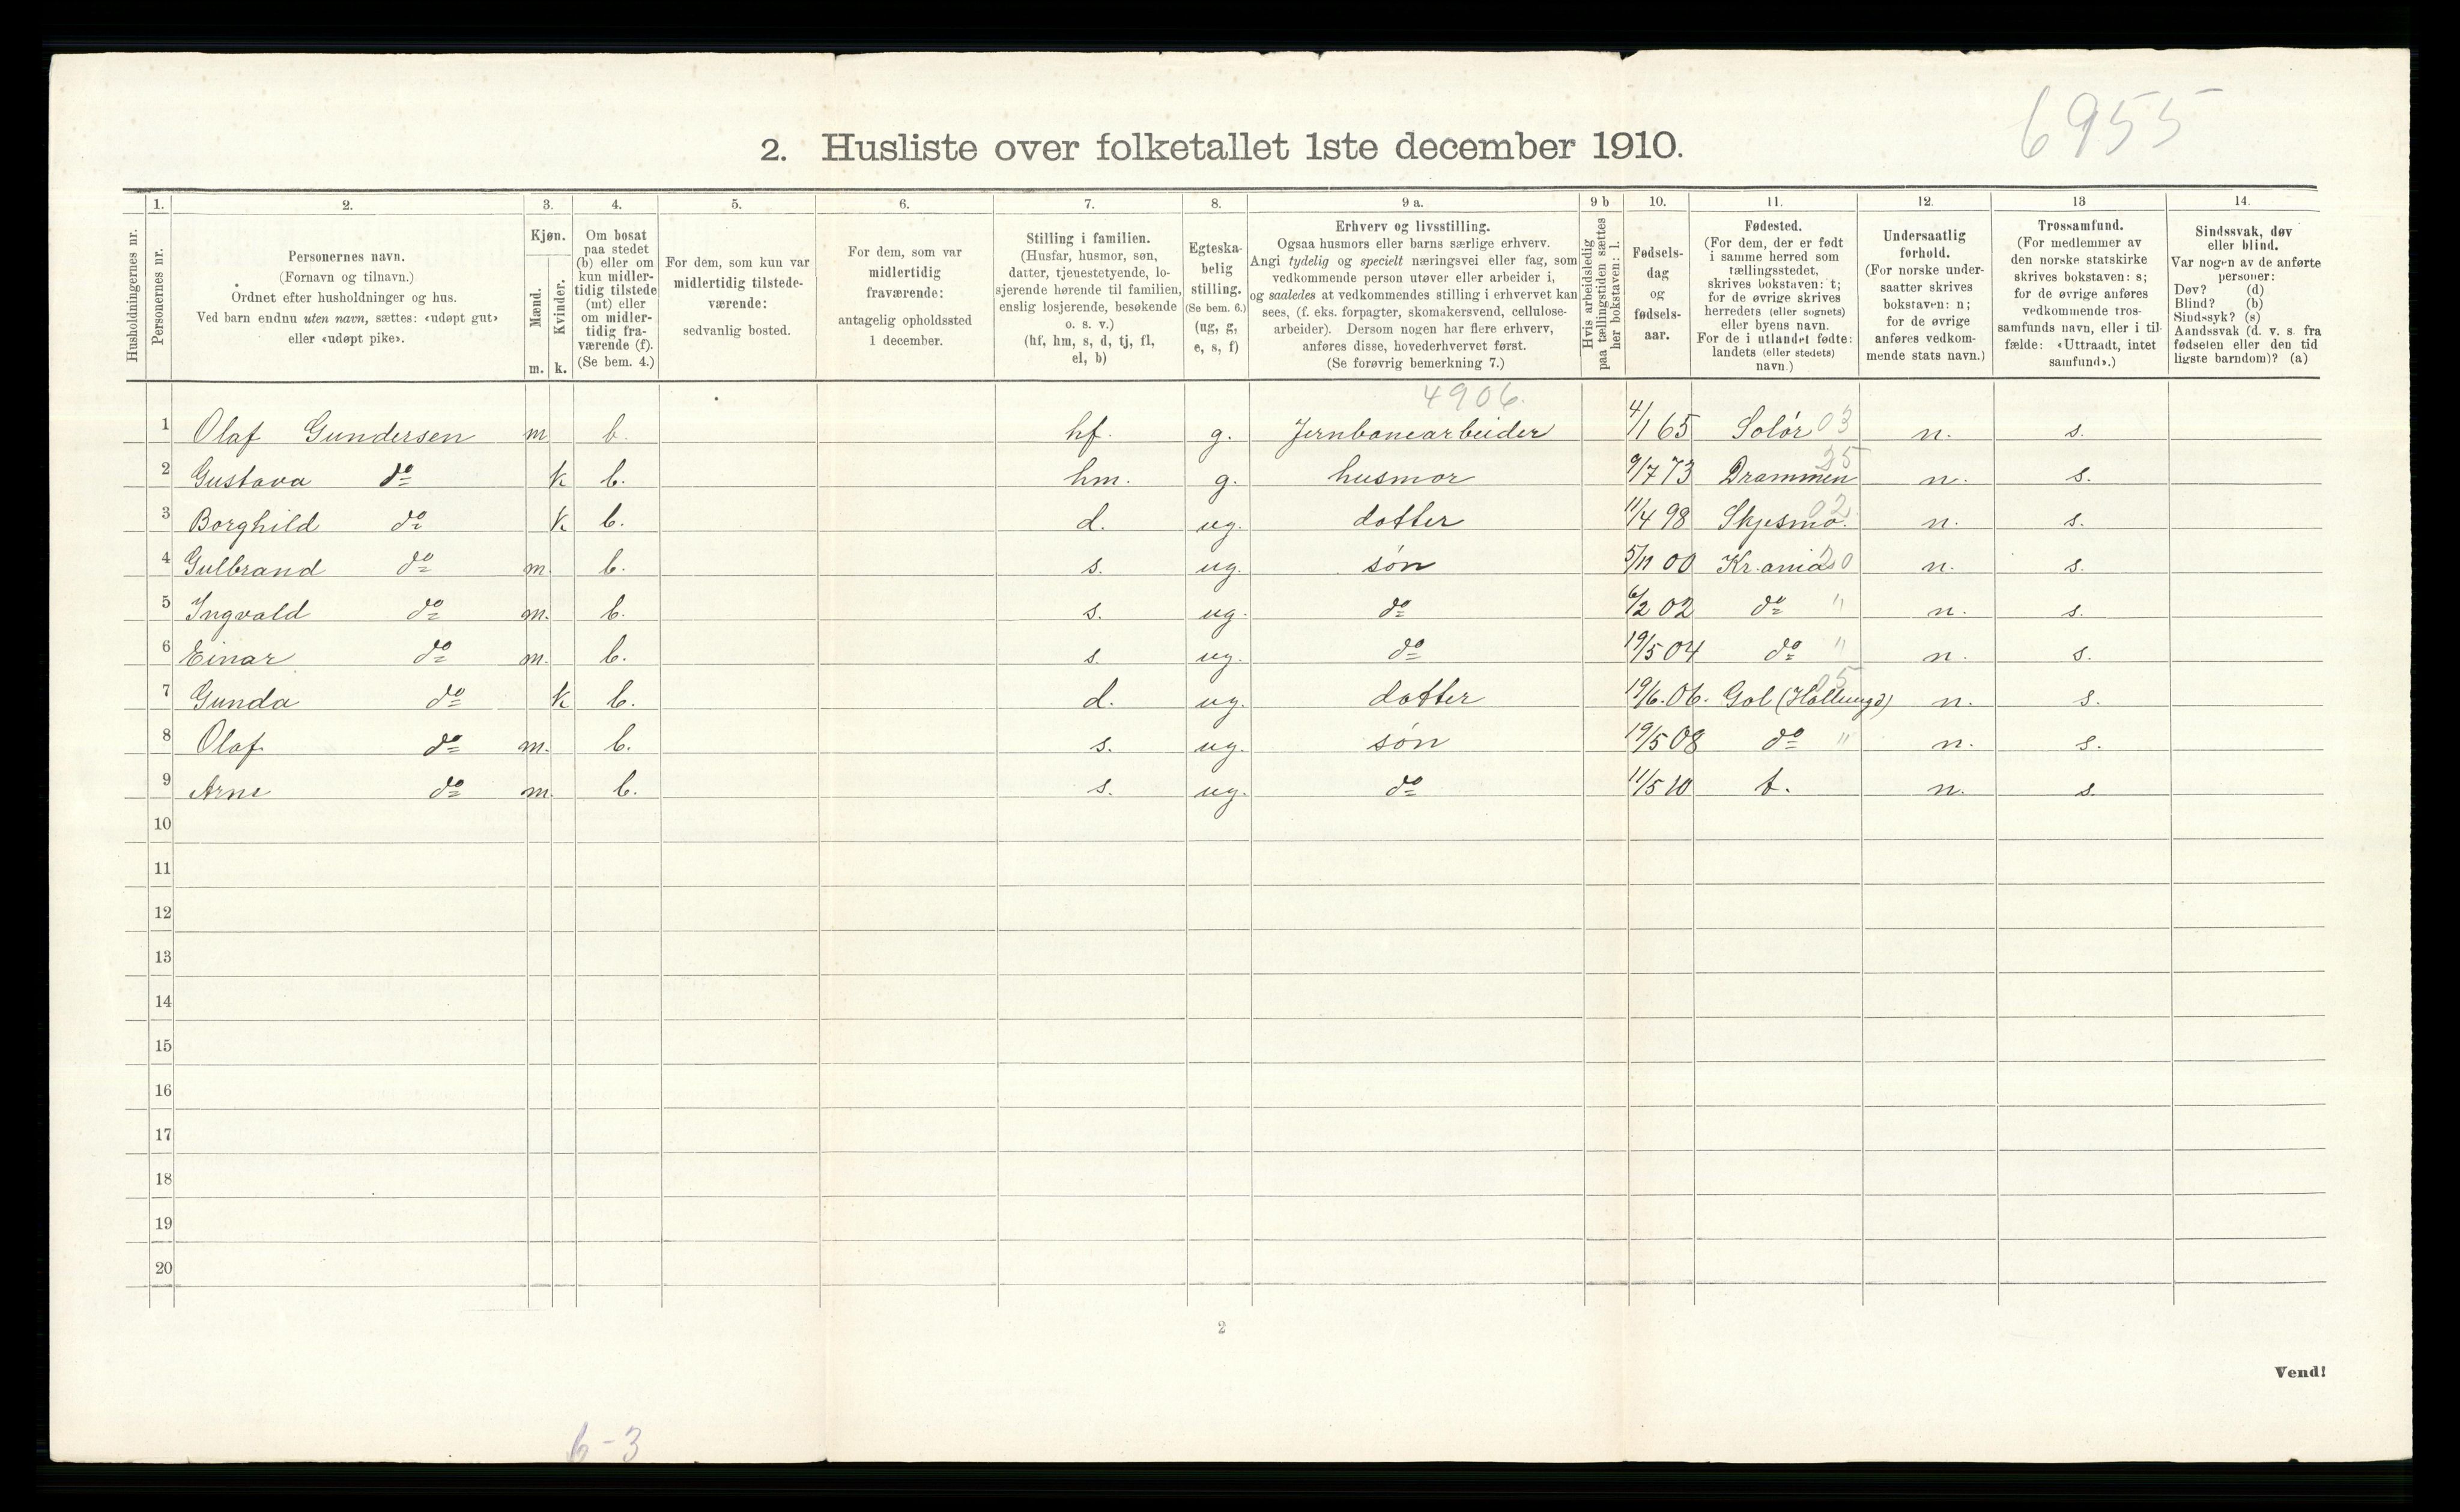 6955
2. Husliste over folketallet 1ste december 1910.
Husholdningernes nr.
1.
Personernes nr.
2.
Personernes navn.
(Fornavn og tilnavn.)
Ordnet efter husholdninger og hus.
Ved barn endnu uten navn, sættes: «udøpt gut»
eller «udøpt pike».
3.
Kjøn.
Mænd.
Kvinder.
m. k.
4.
Om bosat
paa stedet
(b) eller om
kun midler-
tidig tilstede
(mt) eller
om midler-
tidig fra-
værende (f).
(Se bem. 4.)
5.
For dem, som kun var
midlertidig tilstede-
værende:
sedvanlig bosted.
6.
For dem, som var
midlertidig
fraværende:
antagelig opholdssted
1 december.
7.
Stilling i familien.
(Husfar, husmor, søn,
datter, tjenestetyende, lo-
sjerende hørende til familien,
enslig losjerende, besøkende
o. s. v.)
(hf, hm, s, d, tj, fl,
el, b)
8.
Egteska-
belig
stilling.
(Se bem. 6.)
(ug, g,
e, s, f)
9 a.
Erhverv og livsstilling.
Ogsaa husmors eller barns særlige erhverv.
Angi tydelig og specielt næringsvei eller fag, som
vedkommende person utøver eller arbeider i,
og saaledes at vedkommendes stilling i erhvervet kan
sees, (f. eks. forpagter, skomakersvend, cellulose-
arbeider). Dersom nogen har flere erhverv,
anføres disse, hovederhvervet først.
(Se forøvrig bemerkning 7.)
9 b
Hvis arbeidsledig
paa tællingstiden sættes
her bokstaven: l.
10.
Fødsels-
dag
og
fødsels-
aar.
11.
Fødested.
(For dem, der er født
i samme herred som
tællingsstedet,
skrives bokstaven: t;
for de øvrige skrives
herredets (eller sognets)
eller byens navn.
For de i utlandet fødte:
landets (eller stedets)
navn.)
12.
Undersaatlig
forhold.
(For norske under-
saatter skrives
bokstaven: n;
for de øvrige
anføres vedkom-
mende stats navn.)
13
Trossamfund.
(For medlemmer av
den norske statskirke
skrives bokstaven: s;
for de øvrige anføres
vedkommende tros-
samfunds navn, eller i til-
fælde: «Uttraadt, intet
samfund».)
14.
Sindssvak, døv
eller blind.
Var nogen av de anførte
personer:
Døv? (d)
Blind? (b)
Sindssyk? (s)
Aandssvak (d. v. s. fra
fødselen eller den tid
ligste barndom)? (a)
4906.
1 Olaf Gundersen m b. hf. g. Jernbanearbeider 4/1 65 Solør 03 n. s.
2 Gustava do k b. hm. g. husmor 9/7 73 Drammen 25 n. s.
3 Borghild do k b. d. ug. datter 11/4 98 Skjesmo. 02 n. s.
4 Gulbrand do m. b. s. ug. søn 5/11 00 Kr.ania 20 n. s.
5 Ingvald do m. b. s. ug. do 6/2 02 do " n. s.
6 Einar do m. b. s. ug. do 19/5 04 do " n. s.
7 Gunda do k b. d. ug. datter 19/6. 06. Gol (Hallingd) 05 n. s.
8 Olaf do m. b. s. ug. søn 19/5 08 do " n. s.
9 Arne do m. b. s. ug. do 11/5 10 t. n. s.
10
11
12
13
14
15
16
17
18
19
20
2
Vend!
6-3